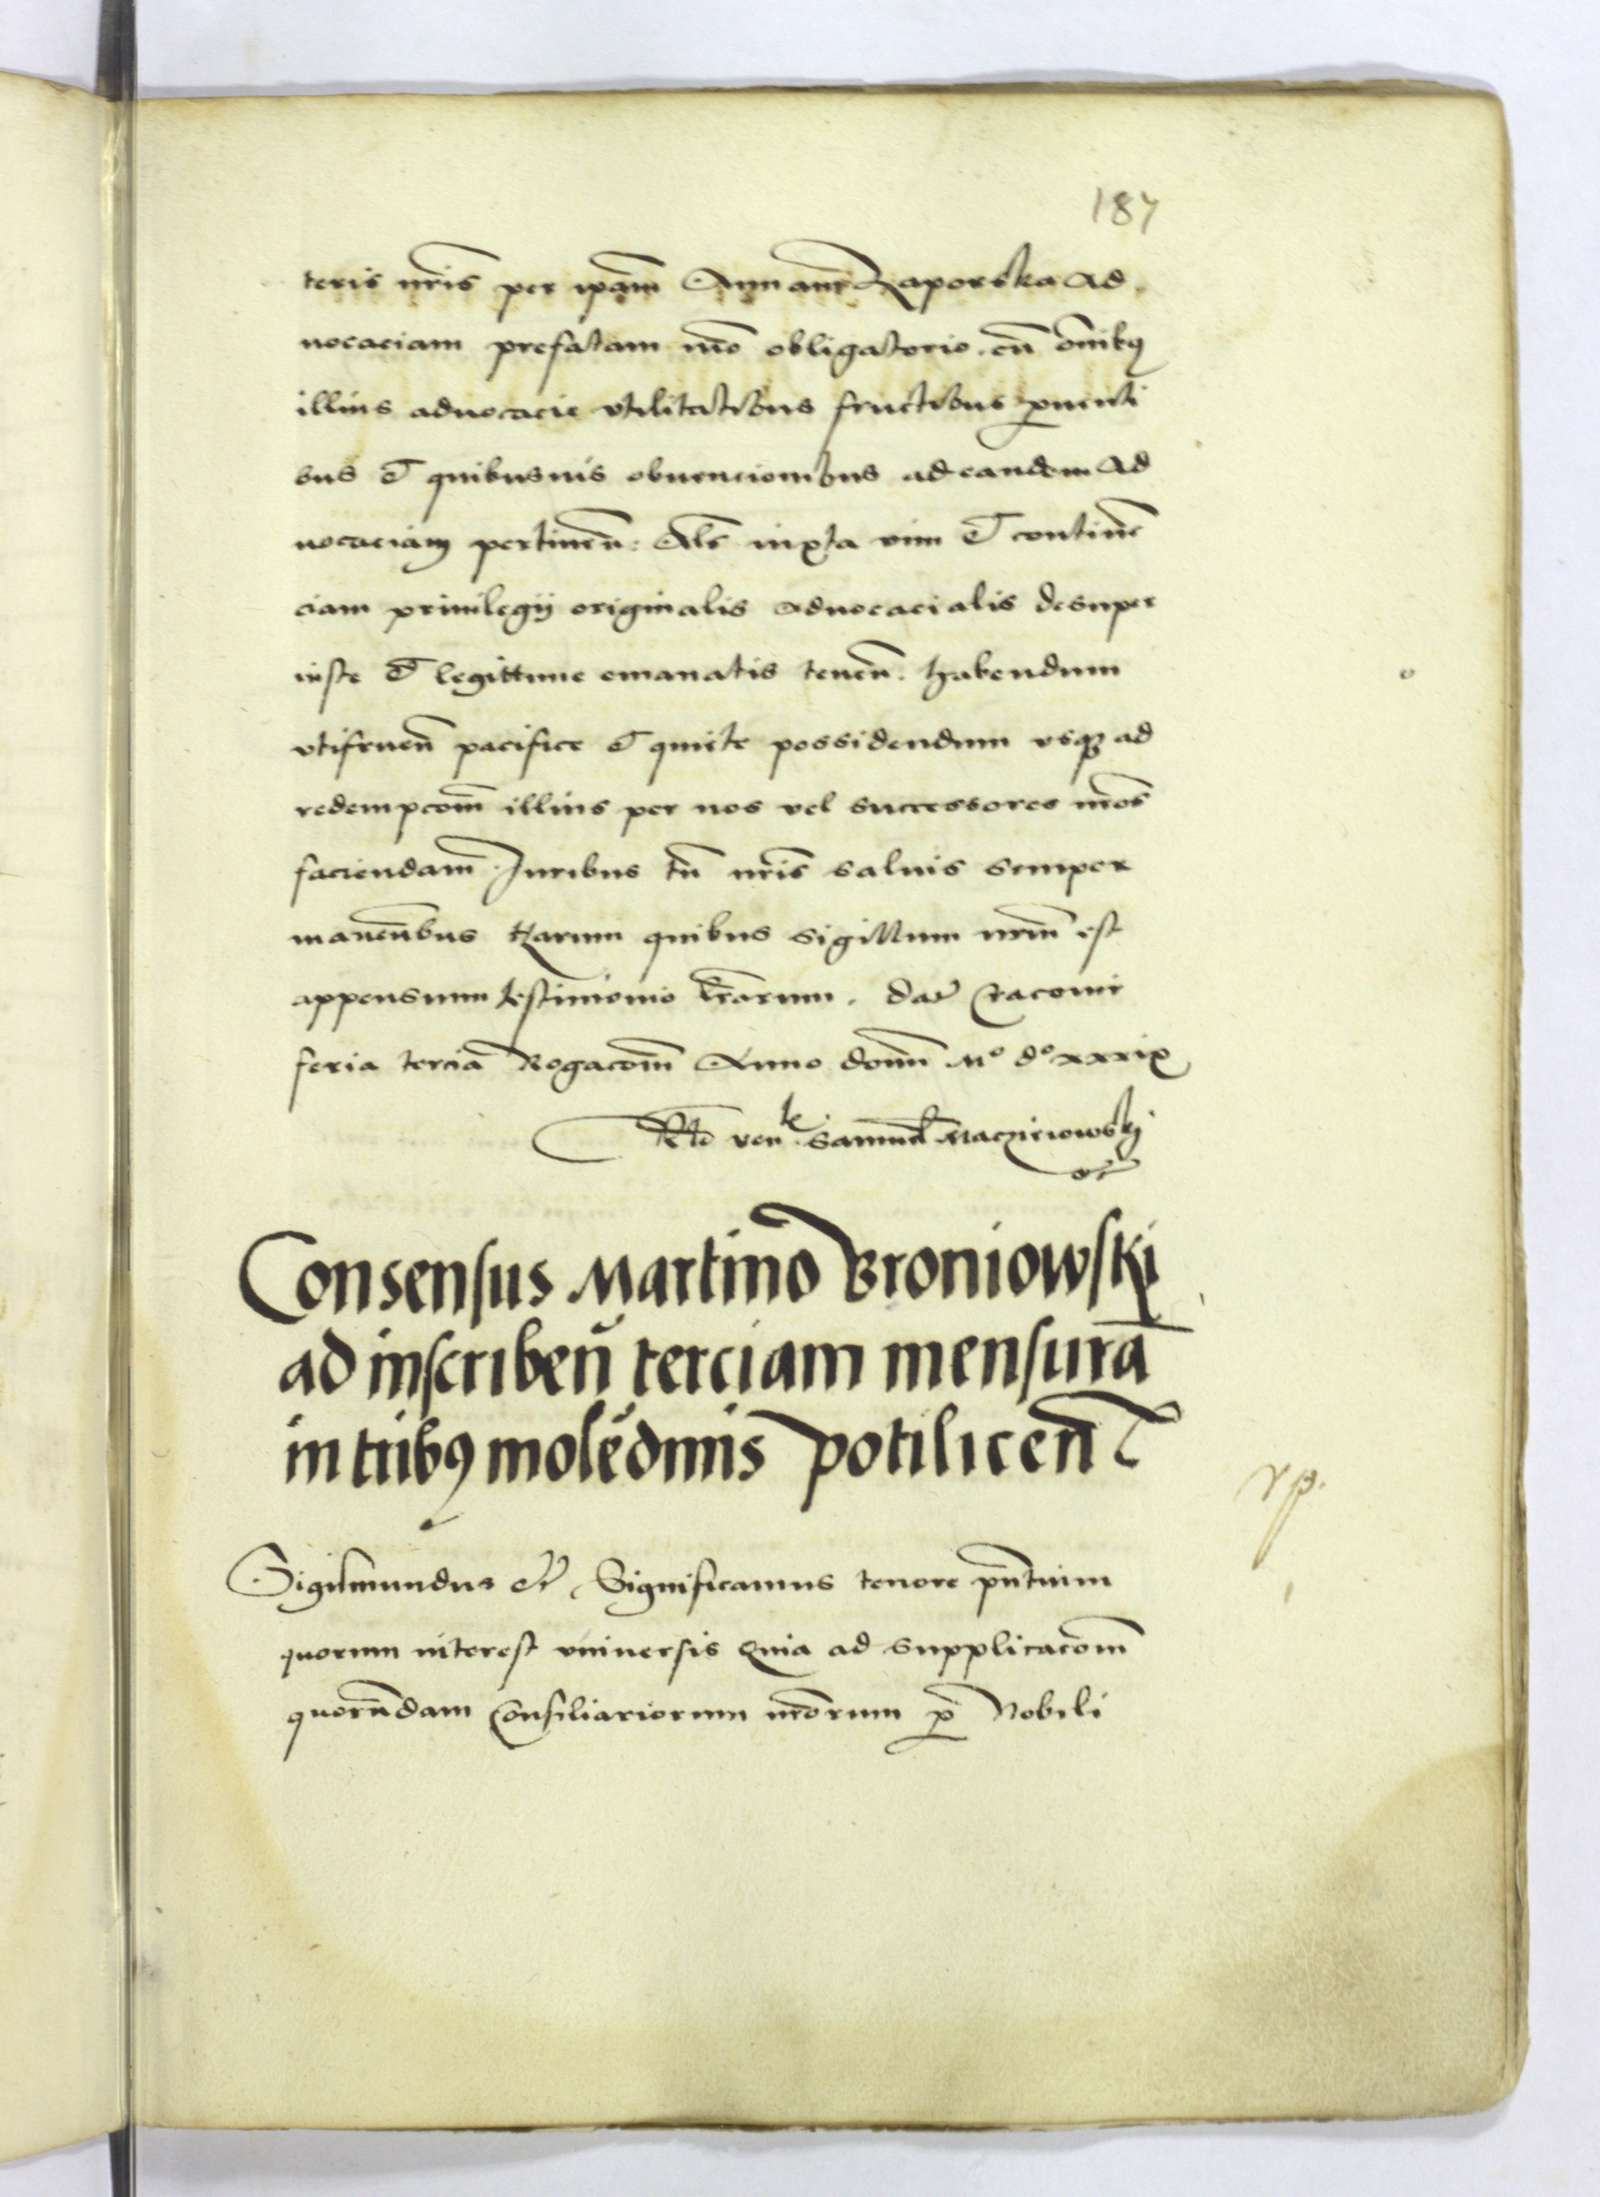 187
teris nris per ipam Annam Zaporska ad
uocaciam prefatam mo obligatorio cu omibus
illius aduocacie vtilitatibus fructibus prouenti
bus et quibusuis obuencionibus ad eandem ad
uocaciam pertinen: Als iuxta vim et continen
ciam priuilegij originalis aduocacialis desuper
iuste et legittime emanatis tenen. habendum
vtifruen pacifice et quiete possidendum vsque ad
redempcom illius per nos vel successores nros
faciendam. Iuribus tn nris saluis semper
manentibus harum quibus sigillum nrm est
appensum testimonio lrarum. Dat Cracouie
feria tercia Rogacom Anno domi Mo do xxxix
Rlo ven Samuel Macziciowskj
etc
Consensus Martino Broniowski
ad inscriben terciam mensura
in tribus moledinis potilicen
rp.
Sigismundus etc Significamus tenore pntium
quorum interest vniuersis Quia ad supplicacom
quorundam Consiliariorum nrorum pro Nobili